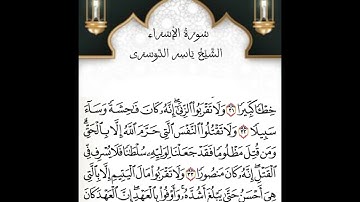 سورة الإسراء
الشيخ ياسر الدوسري
خِطْـًٔا كَبِيرًا ٣١ وَلَا تَقْرَبُوا۟ ٱلزِّنَىٰٓ إِنَّهُۥ كَانَ فَـٰحِشَةً وَسَآءَ
سَبِيلًا ٣٢ وَلَا تَقْتُلُوا۟ ٱلنَّفْسَ ٱلَّتِى حَرَّمَ ٱللَّهُ إِلَّا بِٱلْحَقِّ
وَمَن قُتِلَ مَظْلُومًا فَقَدْ جَعَلْنَا لِوَلِيِّهِۦ سُلْطَـٰنًا فَلَا يُسْرِف فِّى
ٱلْقَتْلِ إِنَّهُۥ كَانَ مَنصُورًا ٣٣ وَلَا تَقْرَبُوا۟ مَالَ ٱلْيَتِيمِ إِلَّا بِٱلَّتِى
هِىَ أَحْسَنُ حَتَّىٰ يَبْلُغَ أَشُدَّهُۥ وَأَوْفُوا۟ بِٱلْعَهْدِ إِنَّ ٱلْعَهْدَ كَانَ